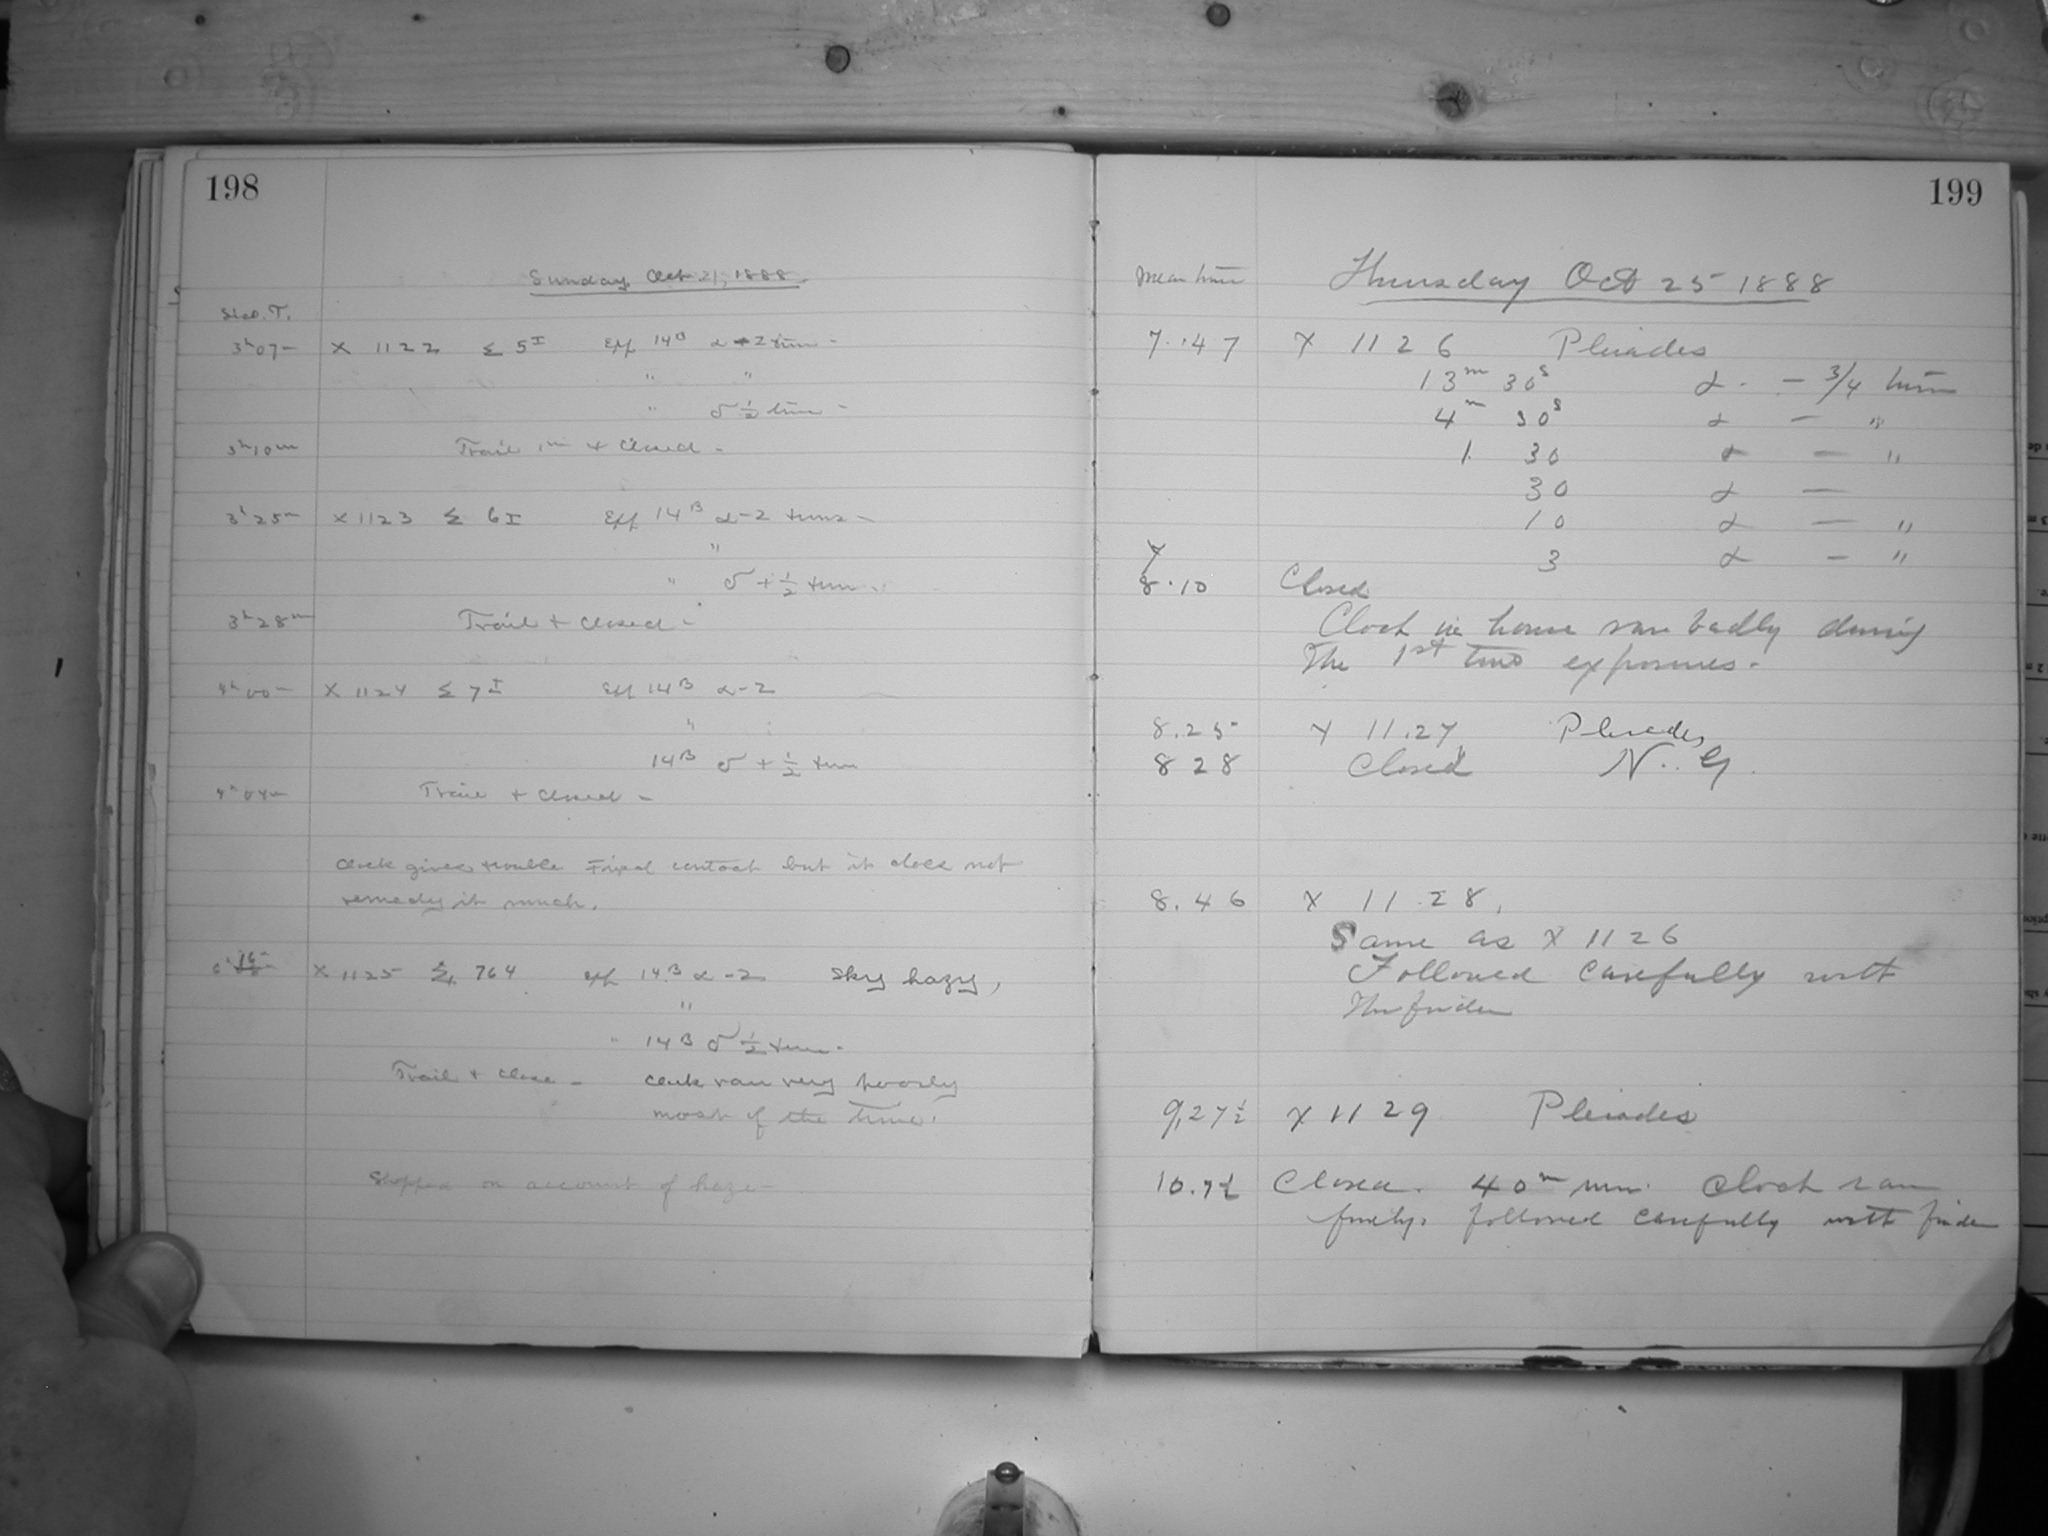 198
Sunday Oct 21, 1888.
Sid. T.
3h07m X 1122 Σ 5I Exp 14B α-2 turn -
" "
" δ ½ turn -
3h10m Trail in + closed -
3h25m X 1123 Σ 6I Exp 14B α-2 turns -
"
" δ + ½ turn.
3h28m Trail + closed -
4h00m X 1124 Σ 7I Exp 14B α-2
"
14B δ + ½ turn
4h04m Trail + closed -
Clock gives trouble Fixed contact but it does not
remedy it much.
X 1125 Σ 764 exp 14B α-2 Sky hazy,
"
" 14B δ ½ turn -
Trail + close - clock ran very poorly
most of the time.
Stopped on account of haze -
199
Mean time Thursday Oct 25 1888
7.47 X 1126 Pleiades
13m 30s α - 3/4 turn
4m 30s α - "
1 30 α - "
30 α -
10 α - "
3 α - "
8.10 Closed
Clock in house ran badly during
the 1st two exposures.
8.25 X 11.27 Pleiades
8 28 Closed N. G.
8.46 X 11.28,
Same as X 1126
Followed carefully with
the finder
9,27½ X 1129 Pleiades
10.7½ Closed. 40m Clock ran
finely. followed carefully with finder